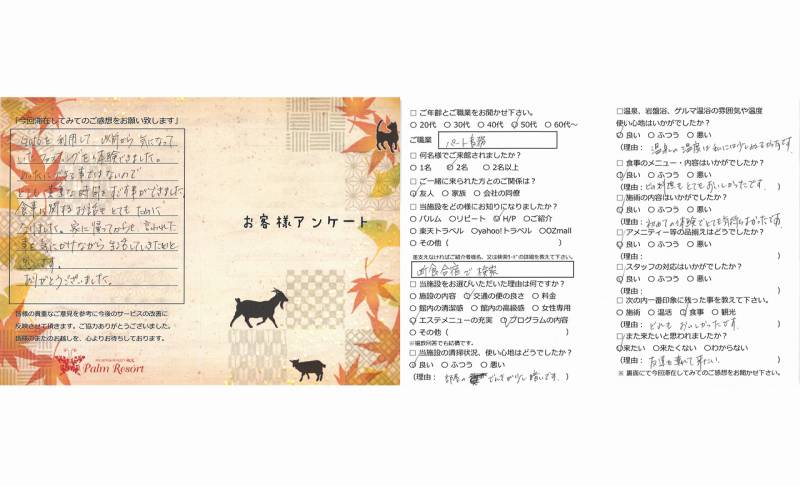 「今回滞在してみてのご感想をお願い致します」
GoToを利用して 以前から 気になって
いたファスティングを体験できました。
めったにできる事ではないので
とても貴重な時間をお食事ができました。
食事に関するお話もとてもために
なりました。家に帰ってからも、言われた
事を気にかけながら生活していきたいと
思います。
ありがとうございました。
皆様の貴重なご意見を参考に今後のサービスの改善に
反映させて頂きます。ご協力ありがとうございました。
皆様のまたのお越しを、心よりお待ちしております。
Palm Resort
お客様アンケート
□ ご年齢とご職業をお聞かせ下さい。
○ 20代 ○ 30代 ○ 40代 ○ 50代 ○ 60代～
ご職業 パート事務
□ 何名様でご来館されましたか？
○ 1名 ○ 2名 ○ 2名以上
□ ご一緒に来られた方とのご関係は？
○ 友人 ○ 家族 ○ 会社の同僚
□ 当施設をどの様にお知りになりましたか？
○ パルム ○ リピート ○ H/P ○ご紹介
○ 楽天トラベル ○yahoo!トラベル ○OZmall
○ その他（ ）
差支えなければご紹介者様名、又は検索ワードの詳細を教えて下さい。
断食合宿で検索
□ 当施設をお選びいただいた理由は何ですか？
○ 施設の内容 ○ 交通の便の良さ ○ 料金
○ 館内の清潔感 ○ 館内の高級感 ○ 女性専用
○ エステメニューの充実 ○ プログラムの内容
○ その他（ ）
※複数回答でも結構です。
□ 当施設の清掃状況、使い心地はどうでしたか？
○ 良い ○ ふつう ○ 悪い
（理由： 部屋の でんきが少し暗いです。 ）
□温泉、岩盤浴、ゲルマ温浴の雰囲気や温度
使い心地はいかがでしたか？
○ 良い ○ ふつう ○ 悪い
（理由： 温泉の温度は私には少しぬるめです。
□ 食事のメニュー・内容はいかがでしたか？
○ 良い ○ ふつう ○ 悪い
（理由：どの料理もとてもおいしかったです。）
□ 施術の内容はいかがでしたか？
○ 良い ○ ふつう ○ 悪い
（理由：初めての体験でとても気持ちよかったです。
□ アメニティー等の品揃えはどうでしたか？
○ 良い ○ ふつう ○ 悪い
□ スタッフの対応はいかがでしたか？
○ 良い ○ ふつう ○ 悪い
□ 次の内一番印象に残った事を教えて下さい。
○ 施術 ○ 温活 ○ 食事 ○ 観光
（理由： どれもおいしかったです。 ）
□ また来たいと思われましたか？
○来たい ○来たくない ○わからない
（理由： 友達も連れて来たい。 ）
※ 裏面にて今回滞在してみてのご感想をお聞かせ下さい。